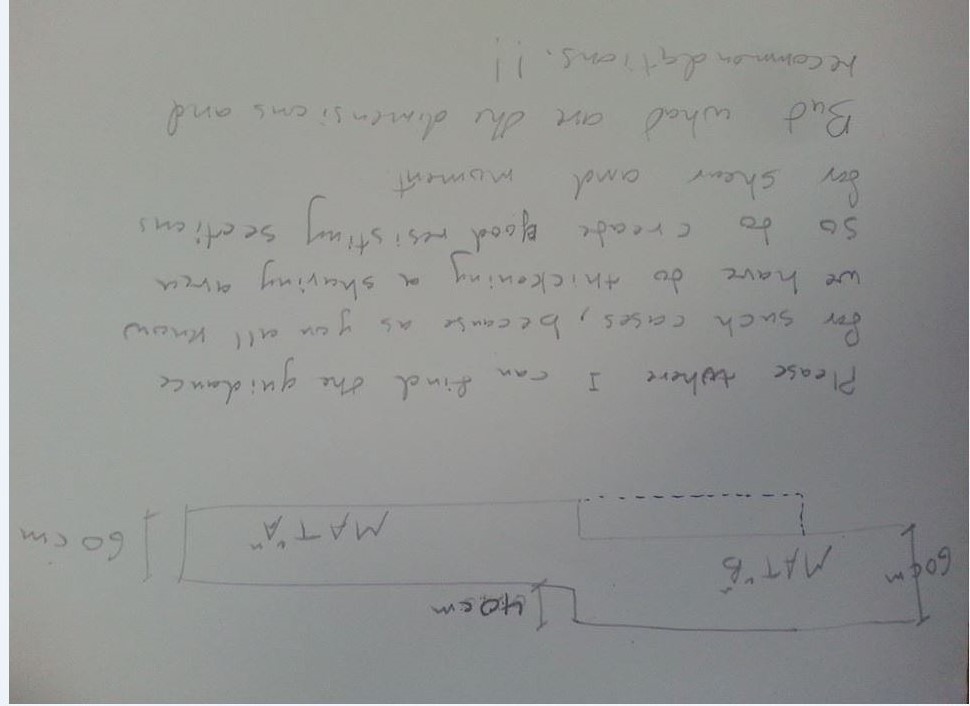 40cm
60cm
MAT "B"
MAT "A"
60 cm
Please where I can find the guidance
for such cases, because as you all know
we have to thickening a sharing area
so to create good resisting sections
for shear and moment
But what are the dimensions and
recommendations. !!